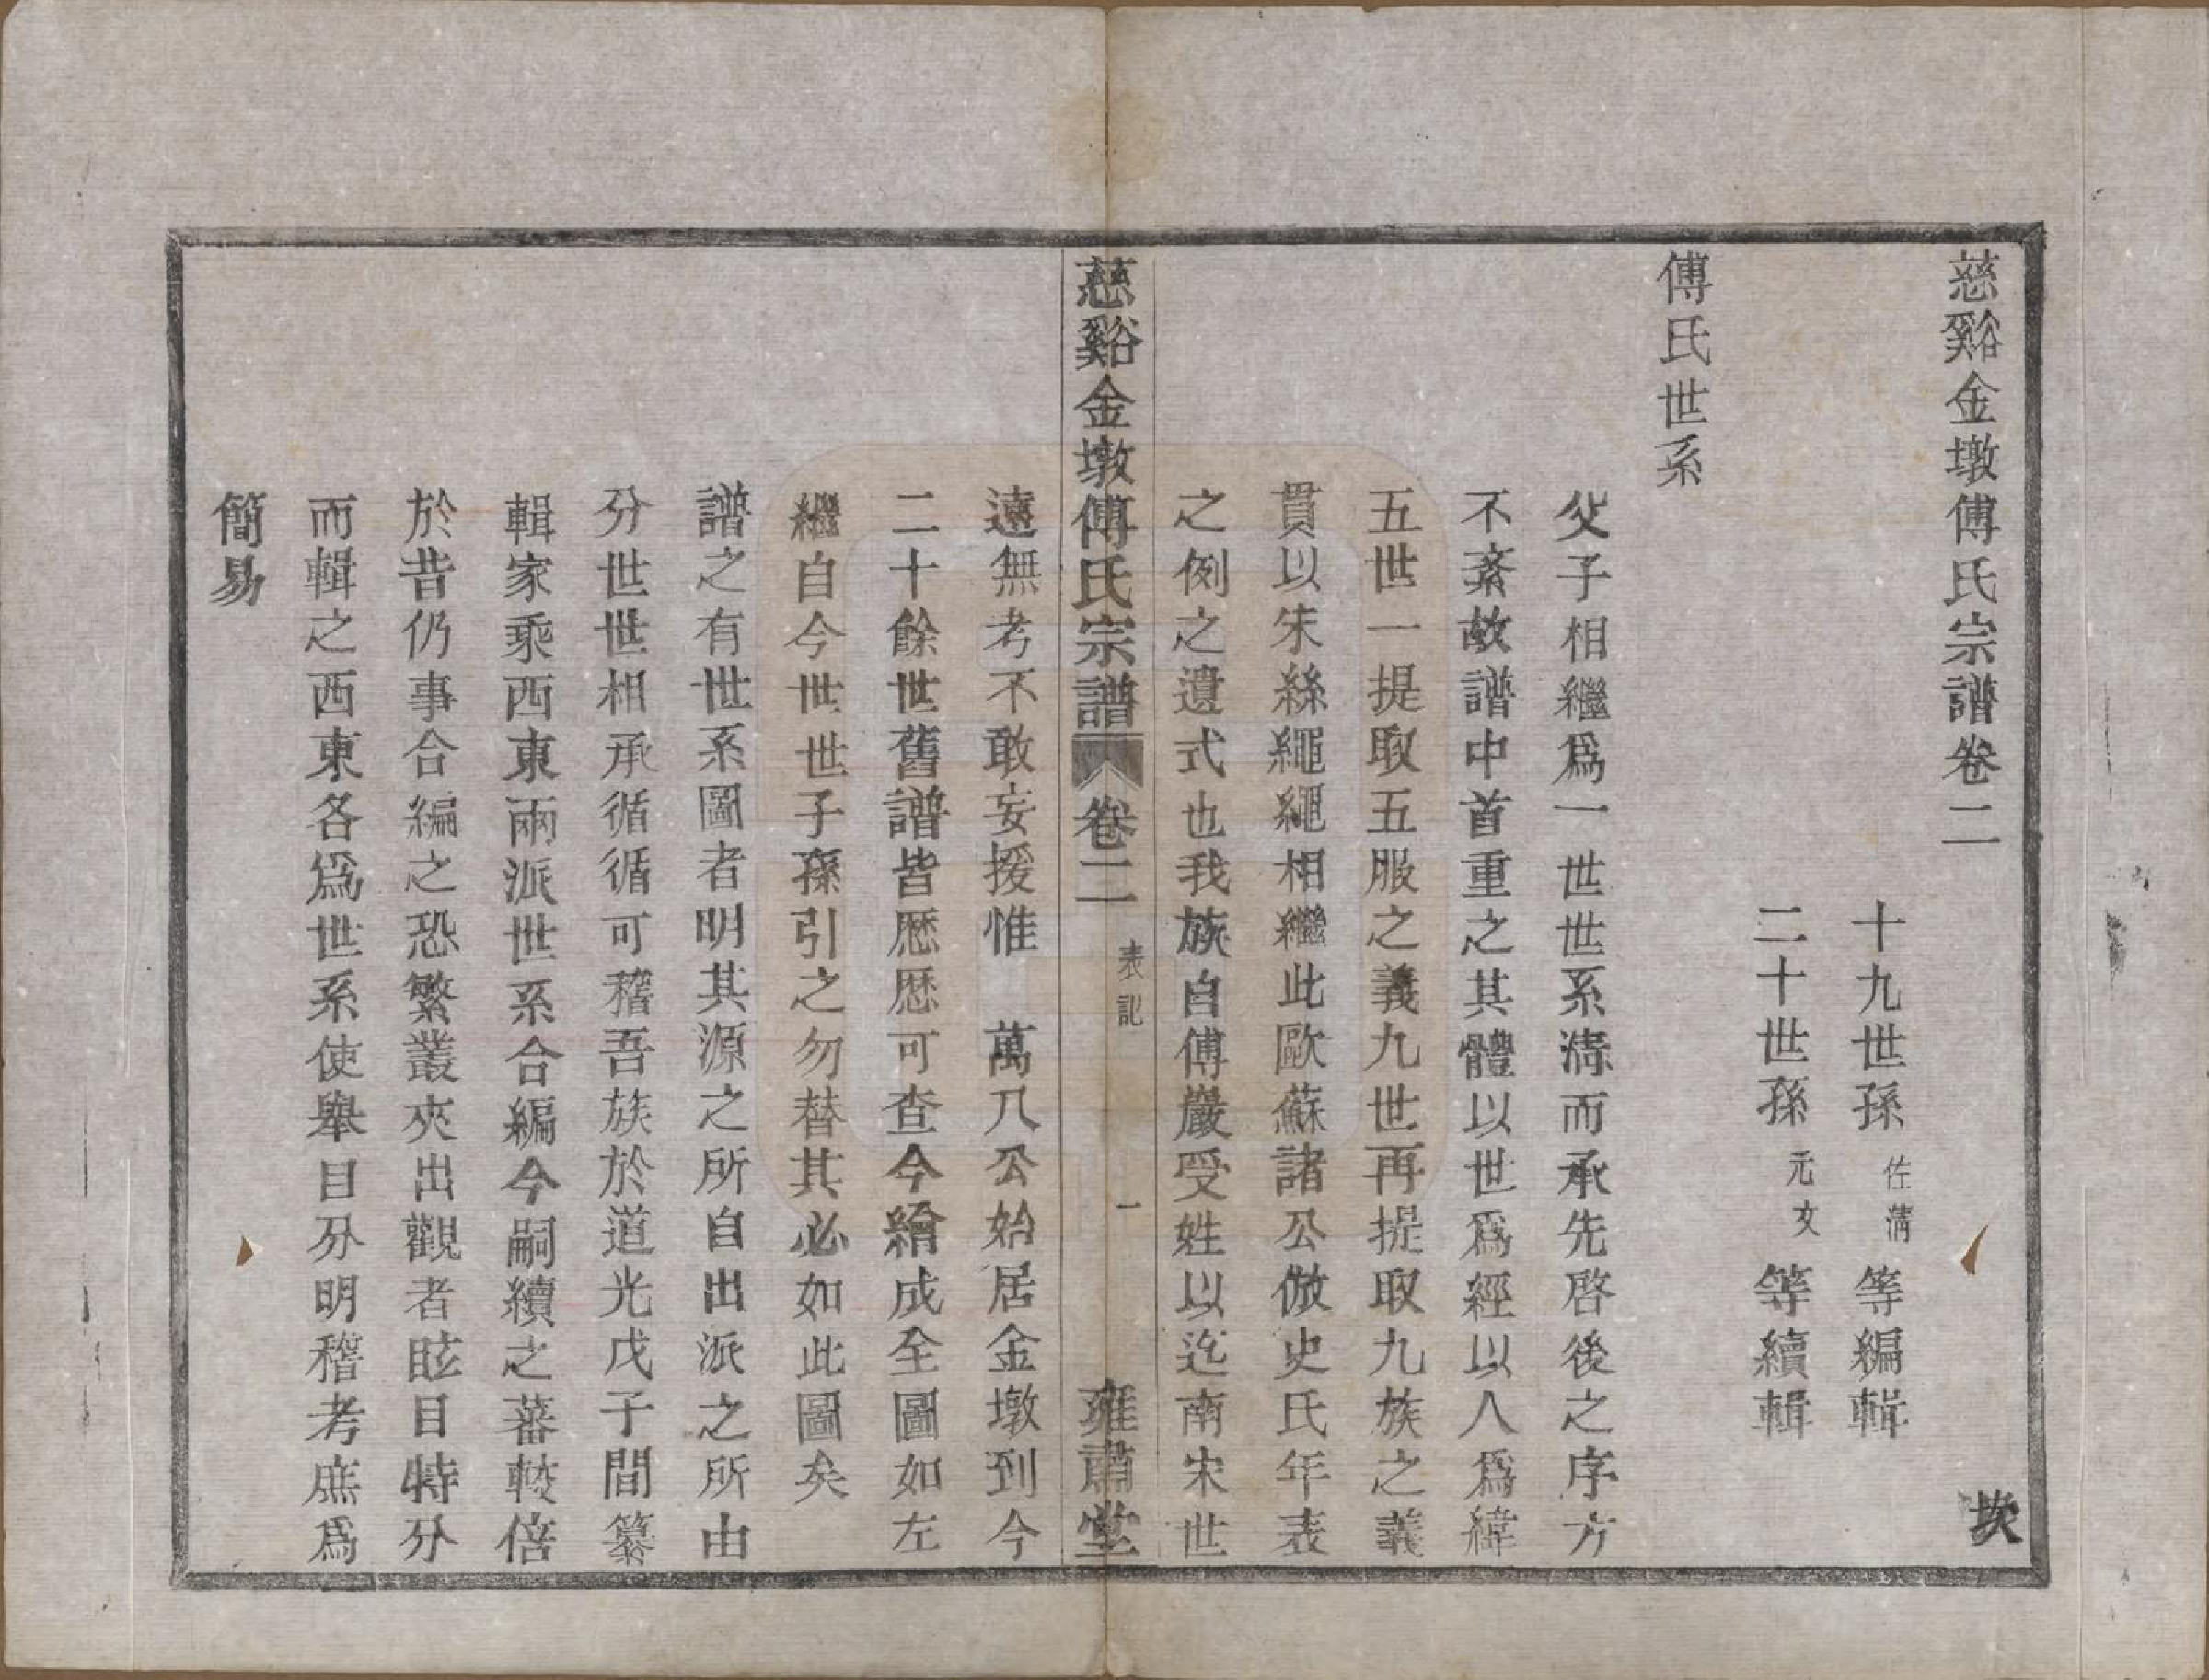 慈谿金墩傅氏宗譜卷二
坎
十九世孫佐清等編輯
二十世孫元文等續輯
傅氏世系
父子相繼爲一世世系淸而承先啓後之序方
不紊故譜中首重之其體以世爲經以人爲緯
五世一提取五服之義九世再提取九族之義
貫以朱絲繩繩相繼此歐蘇諸公倣史氏年表
之例之遺式也我族自傅巖受姓以迄南宋世
慈谿金墩傅氏宗譜 卷二 表記 一 雍肅堂
遠無考不敢妄援惟　萬八公始居金墩到今
二十餘世舊譜皆歷歷可查今繪成全圖如左
繼自今世世子孫引之勿替其必如此圖矣
譜之有世系圖者明其源之所自出派之所由
分世世相承循循可稽吾族於道光戊子間纂
輯家乘西東兩派世系合編今嗣續之蕃較倍
於昔仍事合編之恐繁叢夾出觀者眩目特分
而輯之西東各爲世系使舉目分明稽考庶爲
簡易